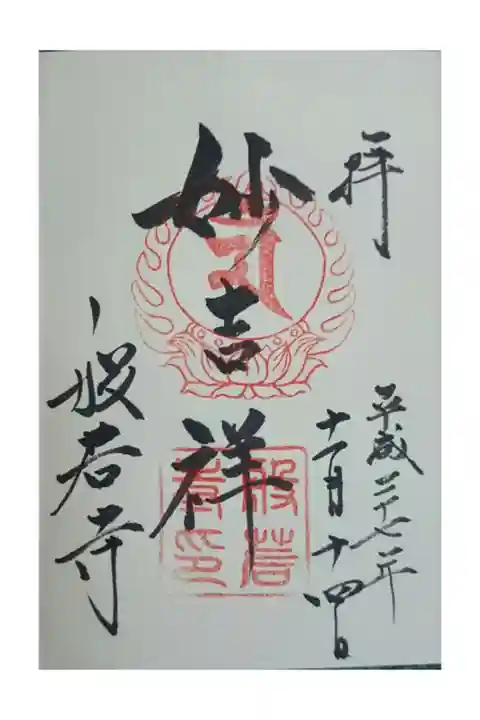 拝
平成二十七年
十一月十四日
妙吉祥
般若寺
般若
寺印